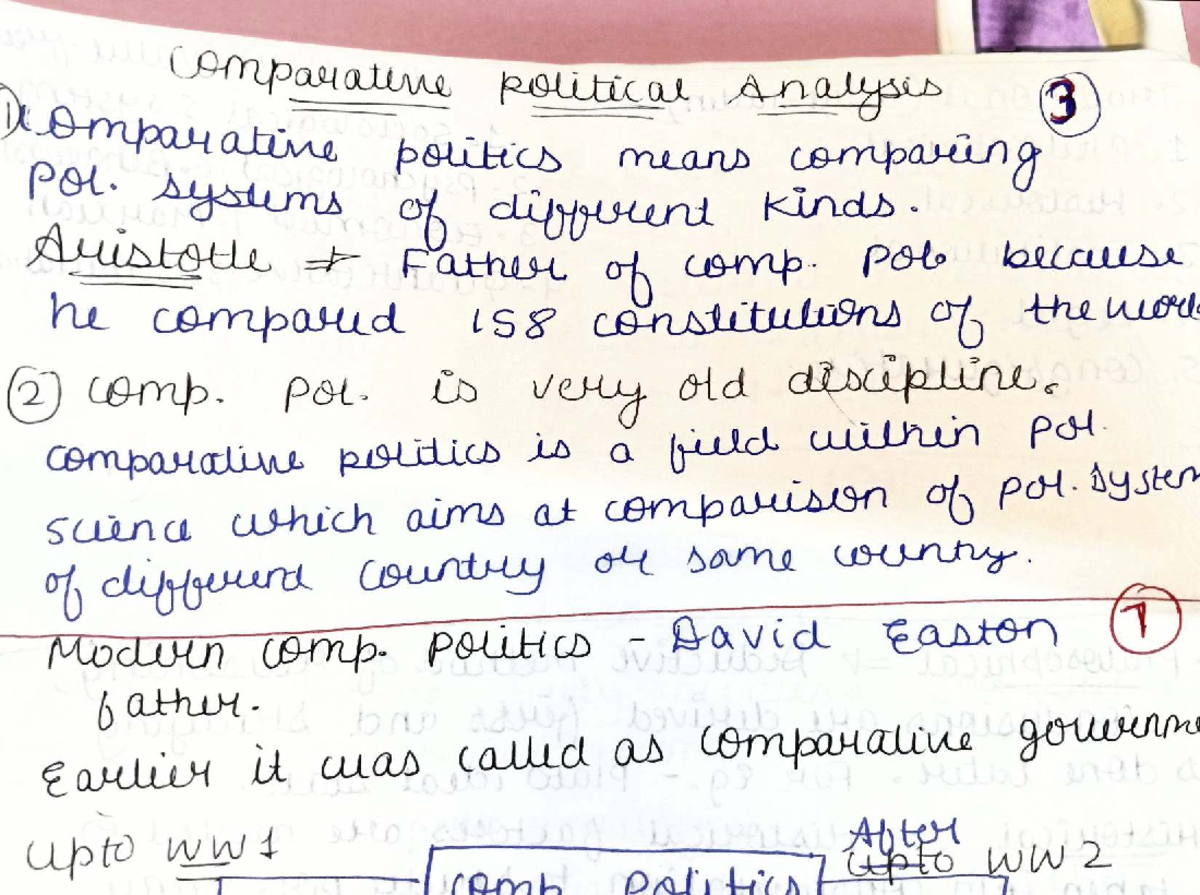 Comparative political Analysis
③
① Comparative politics means comparing
Pol. systems of different kinds.
Aristotle → Father of comp. Pol. because
he compared 158 constitutions of the
② comp. pol. is very old discipline.
comparative politics is a field within pol.
science which aims at comparison of pol. system
of different country or same country.
Modern comp. politics - David Easton ①
father.
Earlier it was called as comparative
upto WW1
After
upto WW2
comp politics